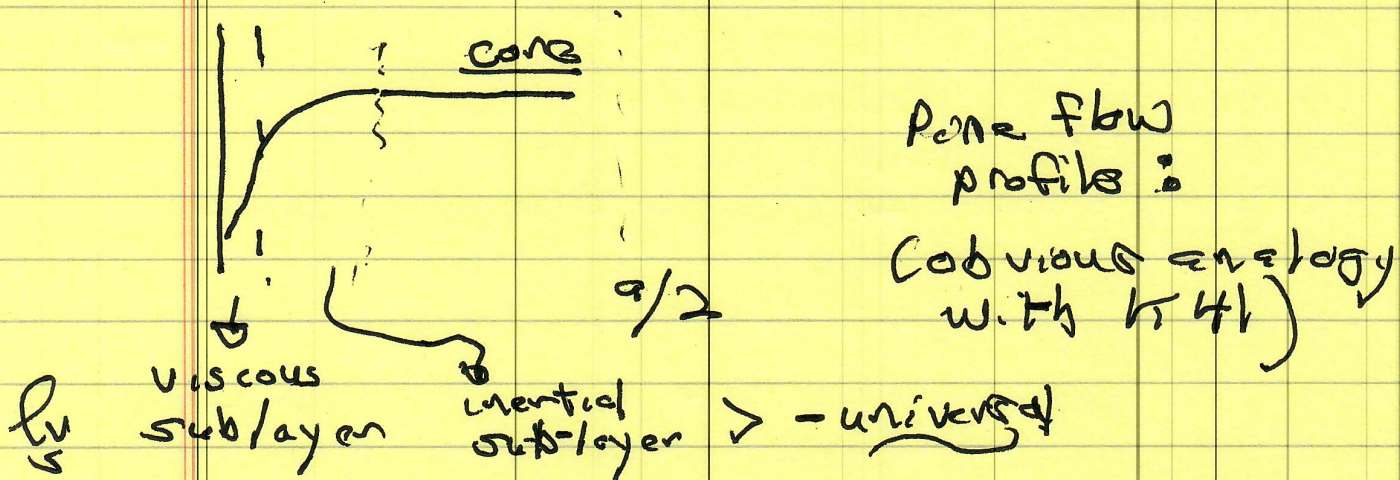 core
Pipe flow
profile :
(obvious analogy
with K41)
a/2
viscous
sublayer
inertial
sub-layer > - universal
lν